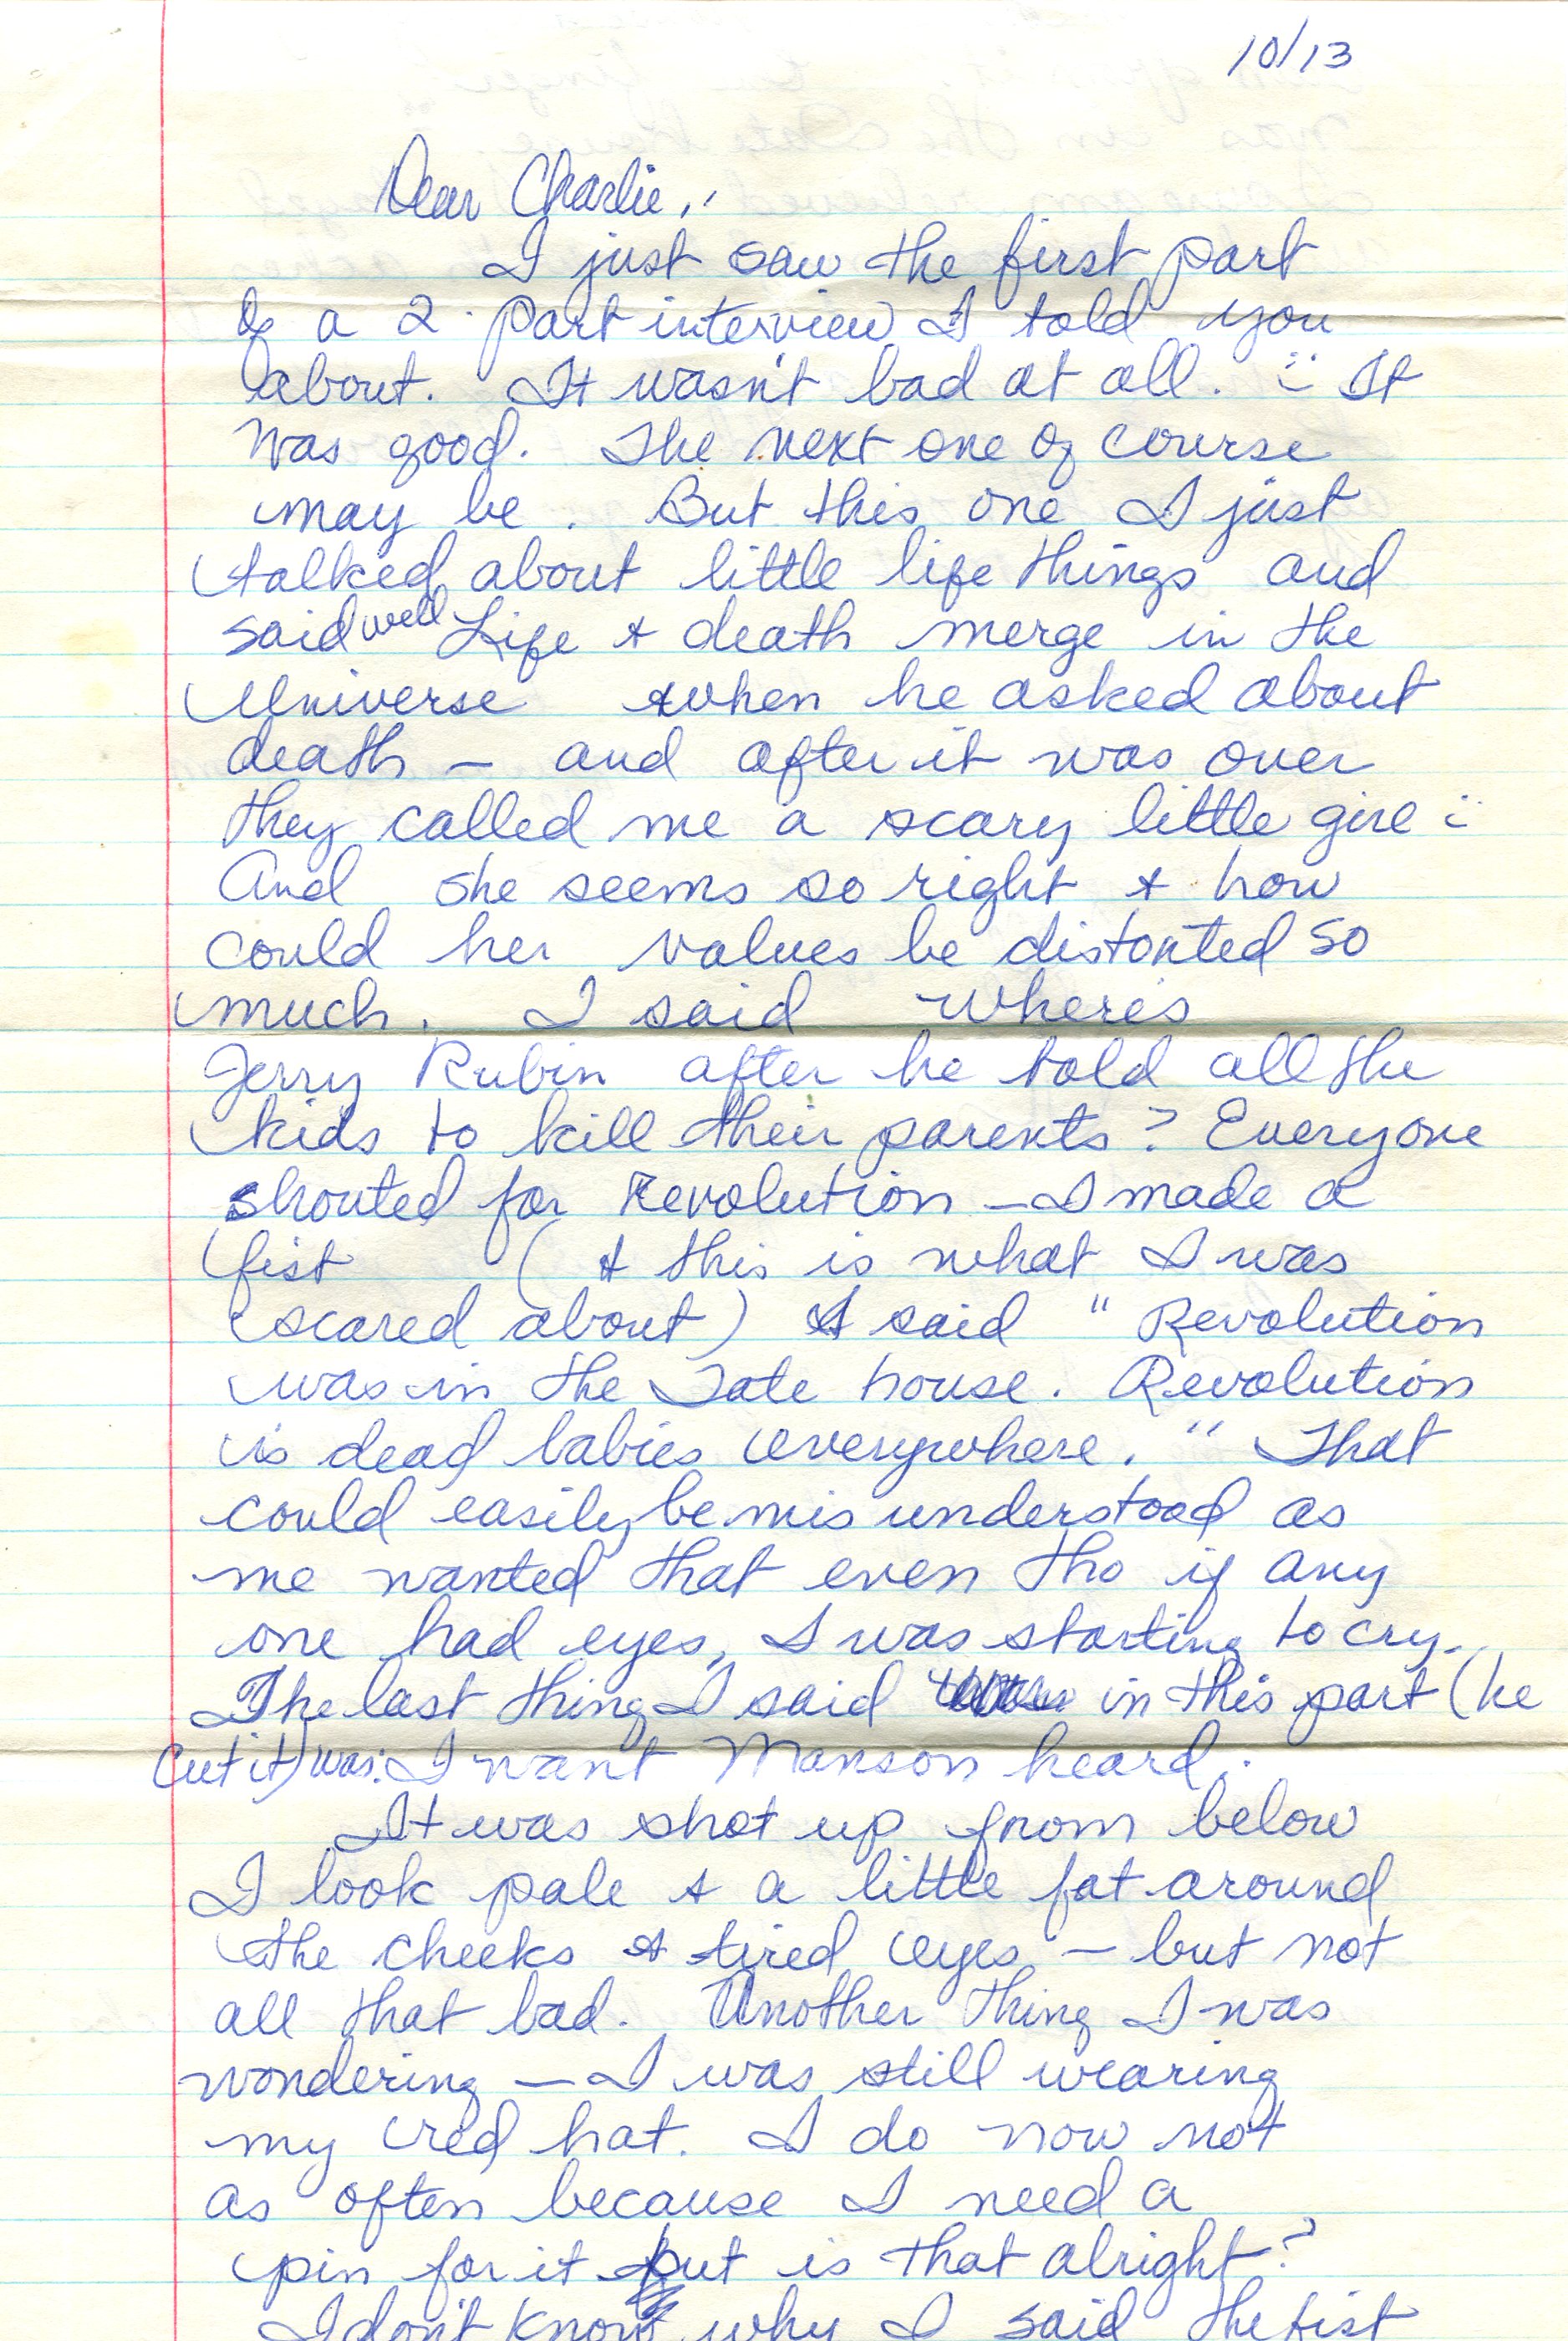 10/13
Dear Charlie,
I just saw the first part
of a 2 part interview I told you
about. It wasn't bad at all. It
was good. The next one of course
may be. But this one I just
talked about little life things and
said well Life & death merge in the
Universe when he asked about
death — and after it was over
they called me a scary little girl
And she seems so right & how
could her values be distorted so
much. I said where's
Jerry Rubin after he told all the
kids to kill their parents? Everyone
shouted for Revolution — I made a
fist (& this is what I was
scared about) I said "Revolution
was in the Tate house. Revolution
is dead babies everywhere." That
could easily be mis understood as
me wanted that even tho if any
one had eyes, I was starting to cry.
The last thing I said in this part (he
cut it) was: I want Manson heard.
It was shot up from below
I look pale & a little fat around
the cheeks & tired eyes — but not
all that bad. Another thing I was
wondering — I was still wearing
my red hat. I do now not
as often because I need a
pin for it but is that alright?
I don't know why I said the fist